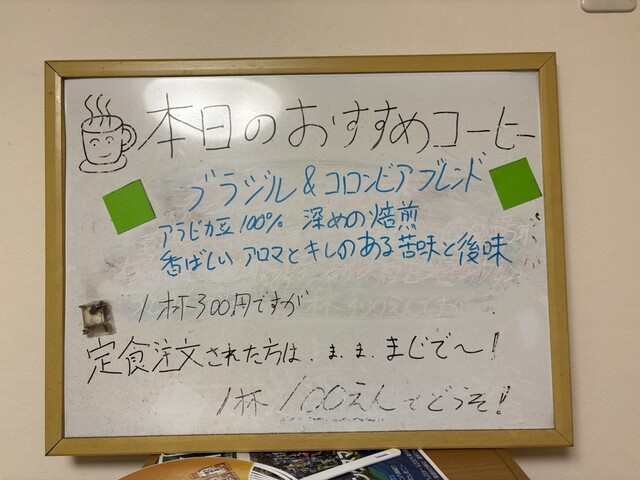 本日のおすすめコーヒー
ブラジル&コロンビアブレンド
アラビカ豆100% 深めの焙煎
香ばしいアロマとキレのある苦味と後味
1杯300円ですが
定食注文された方は、ま、ま、まじで〜!
1杯100えんでどうぞ!